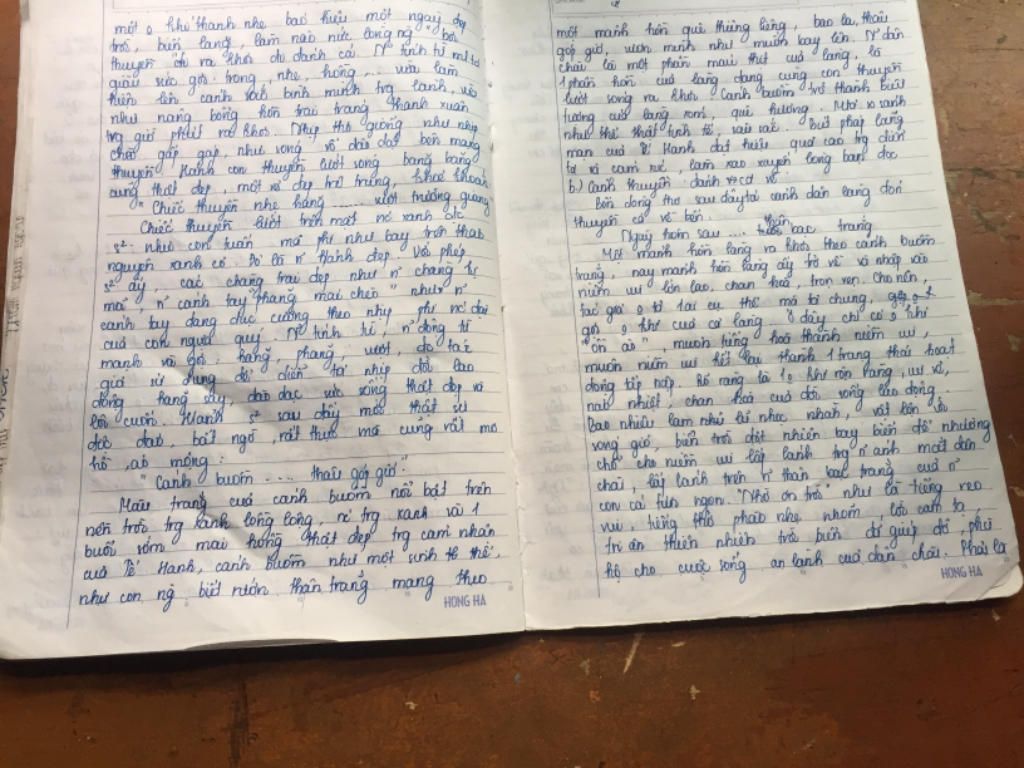 một o khí thanh nhẹ báo hiệu một ngày đẹp
trời, biển lặng, làm náo nức lòng ng "bơi
thuyền đi ra khơi đi đánh cá. N tính từ mtả
giàu sức gợi: trong, nhẹ, hồng... vừa làm
hiện lên cảnh sắc bình minh trg lành, vừa
như nâng bổng hồn trai tráng thanh xuân
trg giờ phút ra khơi. Nhịp thơ giống như nhịp
chèo gấp gáp, như sóng vỗ dào dạt bên mạng
thuyền. Hành con thuyền lướt sóng băng băng
cũng thật đẹp, một vẻ đẹp trẻ trung, khoẻ khoắn
"Chiếc thuyền nhẹ hăng ...... vượt trường giang"
Chiếc thuyền lướt trên mặt nc xanh đc
s² như con tuấn mã phi như bay trên thảo
nguyên xanh cỏ. Đó là n hành đẹp. Với phép
s² ấy, các chàng trai đẹp như n chàng kị
mã, n cánh tay "phăng mái chèo" như n
cánh tay đang giục cương theo nhịp phi nc đại
của con ngựa quý. N tính từ, n động từ
mạnh và gợi: hăng, phăng, vượt, đc tác
giả sử dụng để diễn tả nhịp độ lao
động hăng say, dào dạt sức sống thật đẹp và
lôi cuốn. Hành s² sau đây mới thật sự
độc đáo, bất ngờ, rất thực mà cũng rất mơ
hồ, ảo mộng:
"Cánh buồm .... thâu góp gió".
Màu trắng của cánh buồm nổi bật trên
nền trời trg xanh lồng lộng, nc trg xanh vào 1
buổi sớm mai hồng thật đẹp, trg cảm nhận
của Tế Hanh, cánh buồm như một sinh thể thế,
như con ng biết rướn thân trắng mang theo
HONG HA
một mảnh hồn quê thiêng liêng, bao la, thâu
góp gió, vươn mình như muốn bay lên. N dân
chài là một phần máu thịt của làng, là
1 phần hồn của làng đang cùng con thuyền
lướt sóng ra khơi. Cánh buồm trở thành biểu
tượng của làng xóm, quê hương. Một so sánh
như thế thật tinh tế, sâu sắc. Biện pháp lãng
mạn của Tế Hanh đạt hiệu quả cao trg diễn
tả và cảm xúc, làm xao xuyến lòng bạn đọc
b.) Cảnh thuyền đánh cá về.
Bốn dòng thơ sau đây tả cảnh dân làng đón
thuyền cá về bến
Ngày hôm sau .... thân bạc trắng
Một mảnh hồn làng ra khơi theo cánh buồm
trắng, nay mảnh hồn làng ấy trở về và nhập vào
niềm vui lớn lao, chan hoà, trọn vẹn. Cho nên,
tác giả o tả 1 ai cụ thể mà tả chung, gộp, o
gợi o khí của cả làng. Ở đây chỉ có o khí
"ồn ào" muôn tiếng hoá thành niềm vui,
muôn niềm vui kết lại thành 1 trạng thái hoạt
động tấp nập. Rõ ràng là 1 o khí rộn ràng, vui vẻ,
náo nhiệt, chan hoà của đời sống lao động.
Bao nhiêu lam lũ nhọc nhằn, vật lộn với
sóng gió, biển trời đột nhiên bay biến để nhường
chỗ cho niềm vui lấp lánh trg n ánh mắt dân
chài, lấp lánh trên n thân bạc trắng của n
con cá tươi ngon. "Nhờ ơn trời" như là tiếng reo
vui, tiếng thở phào nhẹ nhõm, lời cảm tạ,
tri ân thiên nhiên trời biển đã giúp đỡ, phù
hộ cho cuộc sống an lành của dân chài. Phải là
HONG HA